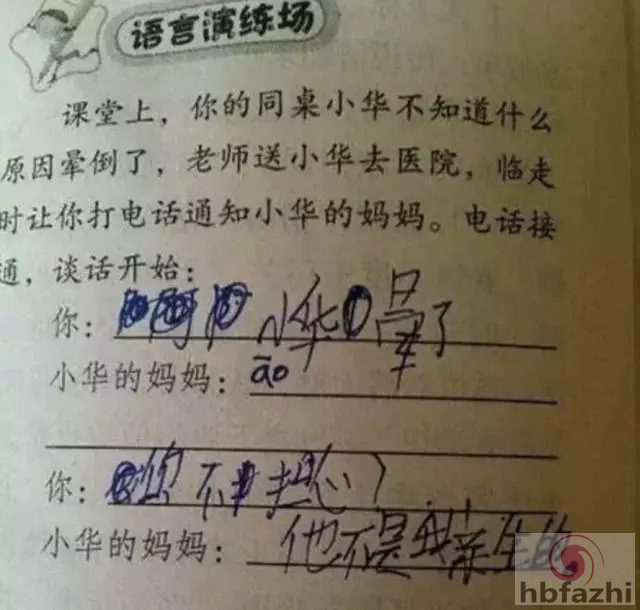 语言演练场
课堂上，你的同桌小华不知道什么
原因晕倒了，老师送小华去医院，临走
时让你打电话通知小华的妈妈。电话接
通，谈话开始：
你：小华晕了
小华的妈妈：āo
你：你不担心？
小华的妈妈：他不是我亲生的
hbfazhi